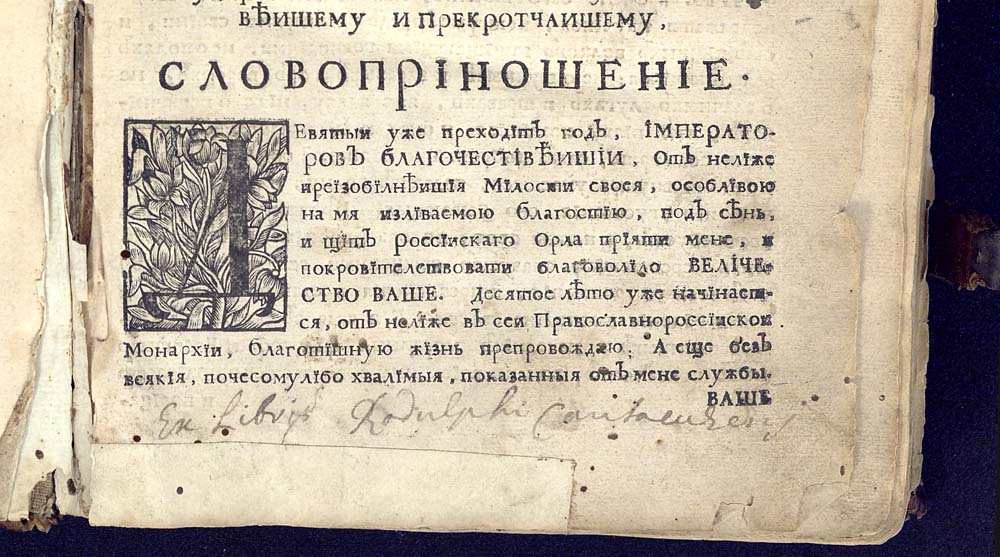 вѣишему и прекротчаишему,
СЛОВОПРІНОШЕНІЕ.
Девятыи уже преходітъ годъ, ІМПЕРАТО-
РОВЪ БЛАГОЧЕСТІВѢИШІИ, Отъ неліже
преізобілнѣишія Мілости своея, особлівою
на мя изліваемою благостію, подъ сѣнь,
и щітъ россіискаго Орла пріяти мене, и
покровітелствовати благоволіло ВЕЛІЧЕ-
СТВО ВАШЕ. Десятое лѣто уже начінает-
ся, отъ неліже въ сеи Православнороссіискои
Монархіи, благотішную жізнь препровождаю; А еще безъ
всякія, почесомулібо хвалімыя, показанныя отъ мене службы.
ВАШЕ
Ex Librijs Rodulphi Cantacuzeni